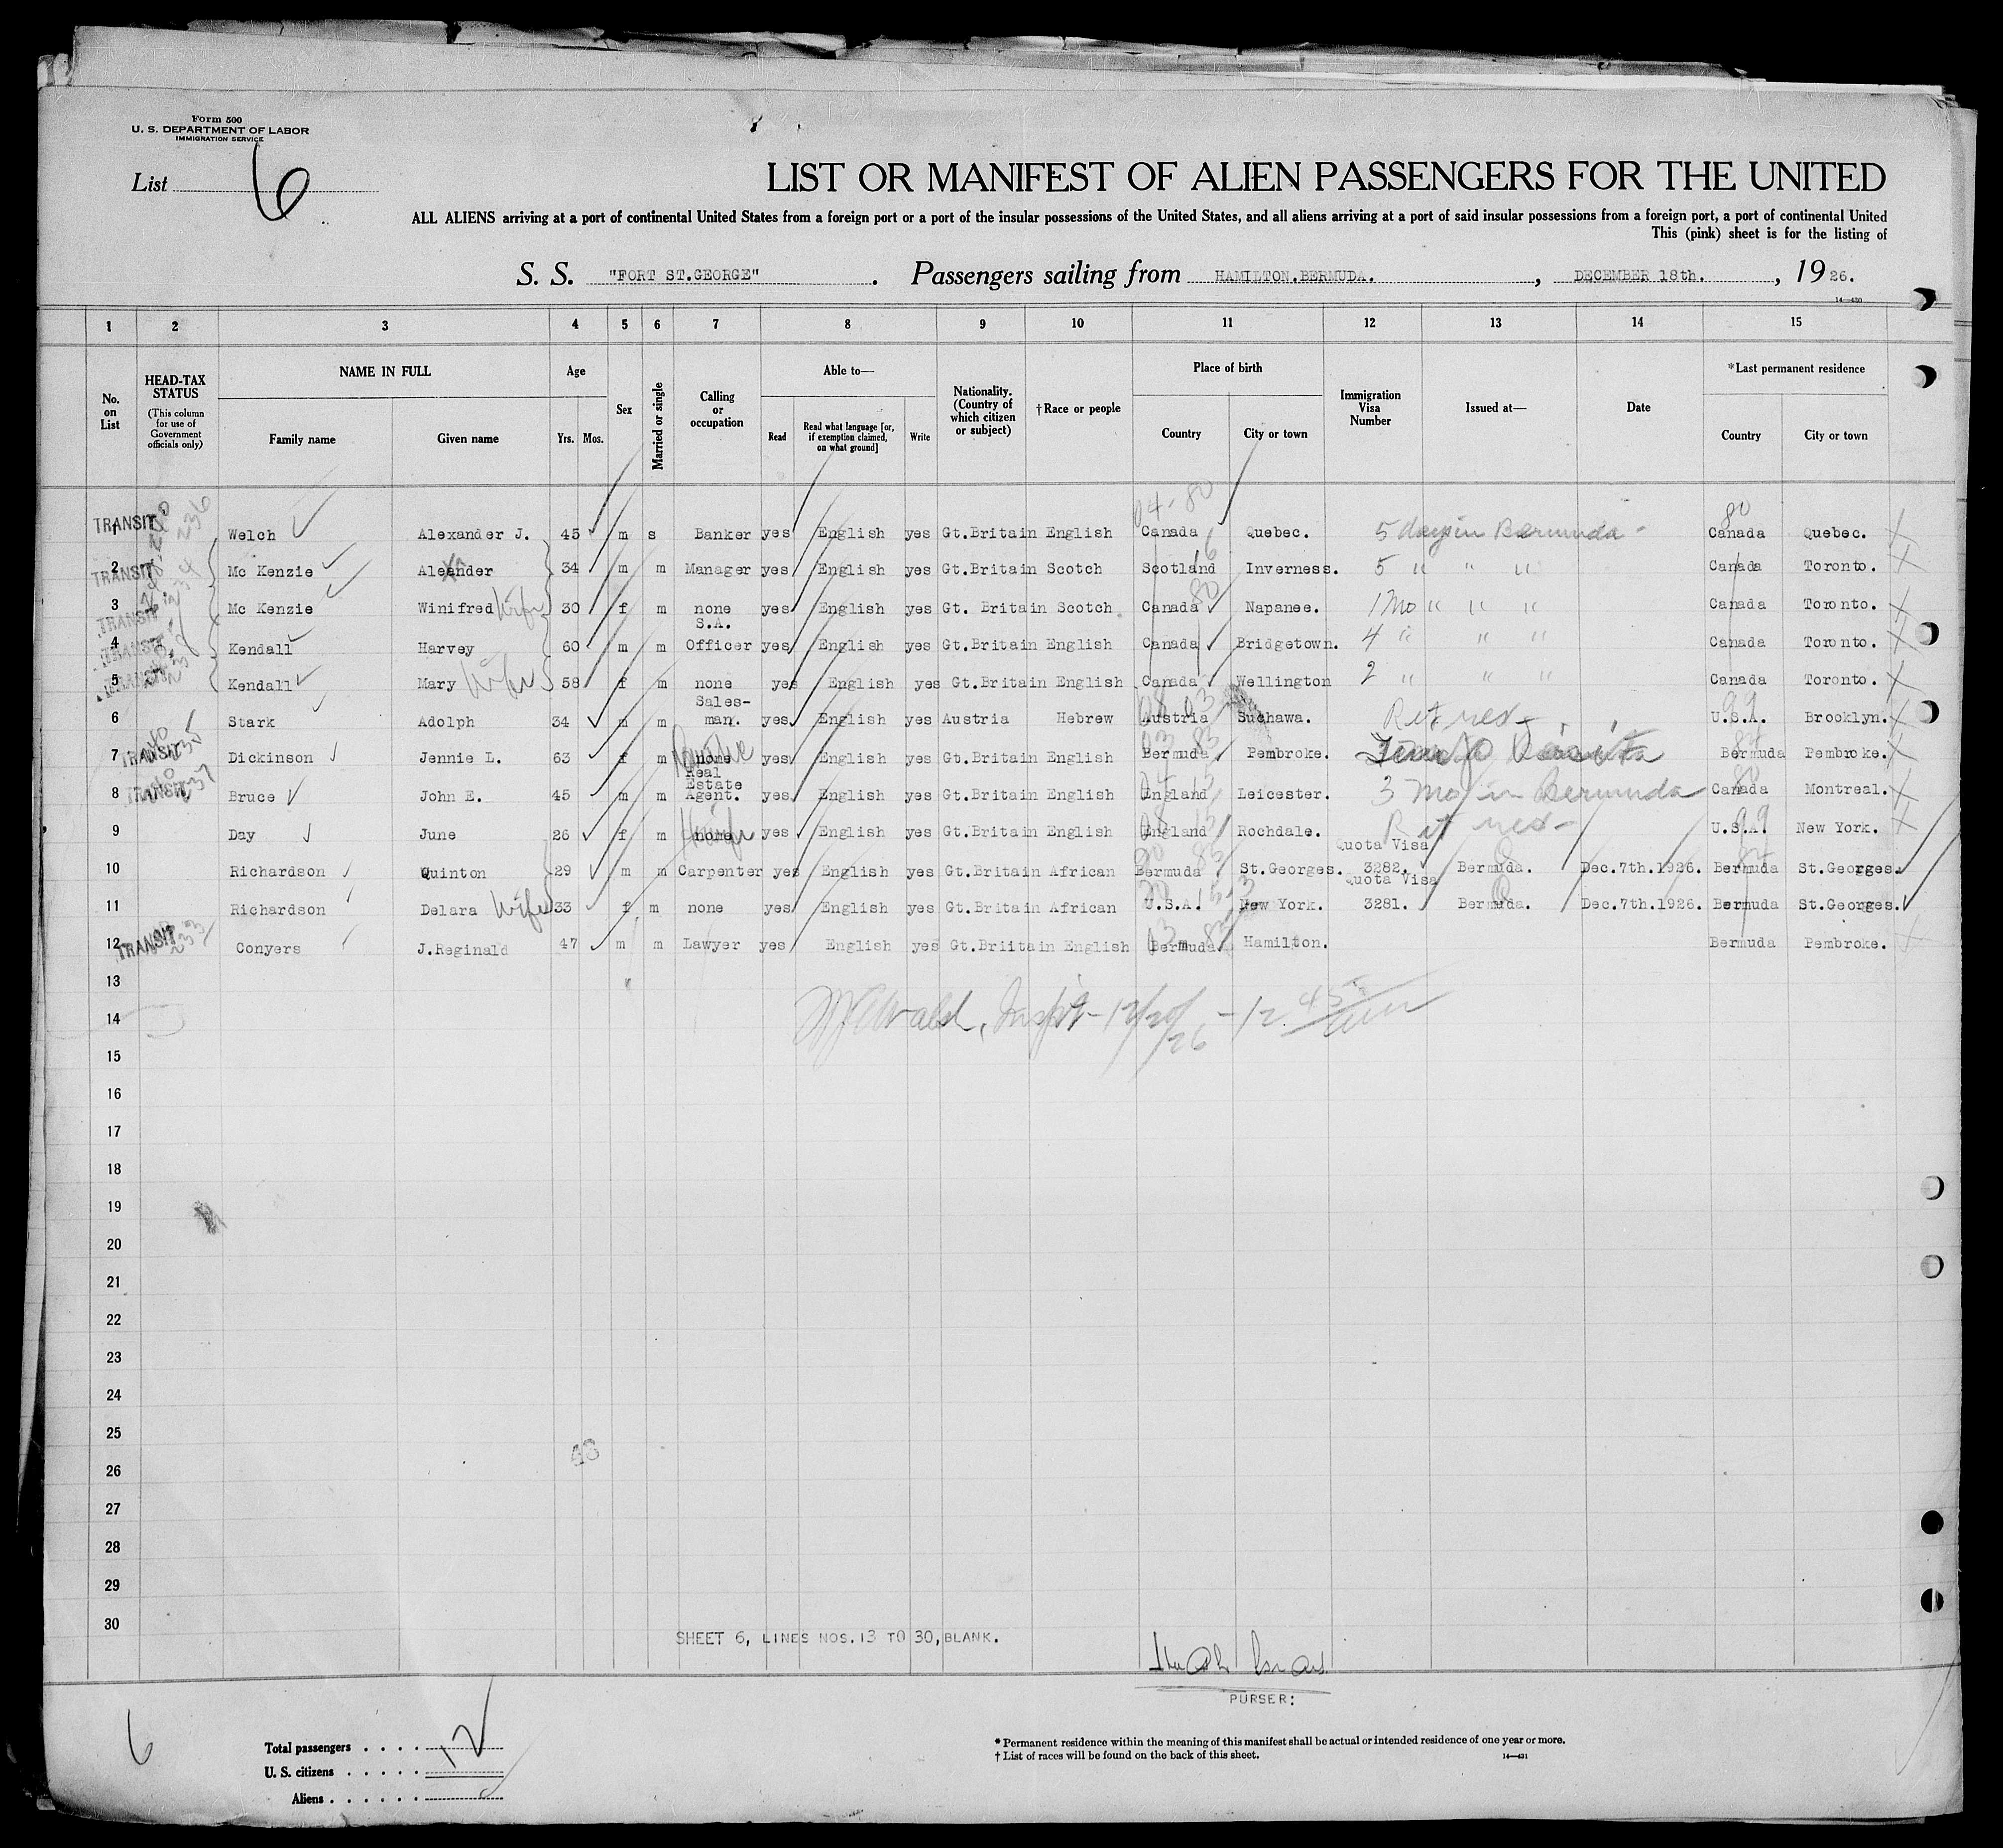 Form 500
U. S. DEPARTMENT OF LABOR
IMMIGRATION SERVICE
List 6
LIST OR MANIFEST OF ALIEN PASSENGERS FOR THE UNITED
ALL ALIENS arriving at a port of continental United States from a foreign port or a port of the insular possessions of the United States, and all aliens arriving at a port of said insular possessions from a foreign port, a port of continental United
This (pink) sheet is for the listing of
S. S. "FORT ST.GEORGE" . Passengers sailing from HAMILTON.BERMUDA. , DECEMBER 18th. , 1926.
14—430
1 2 3 4 5 6 7 8 9 10 11 12 13 14 15
No. on List
HEAD-TAX STATUS (This column for use of Government officials only)
NAME IN FULL
Family name Given name
Age
Yrs. Mos.
Sex
Married or single
Calling or occupation
Able to—
Read Read what language [or, if exemption claimed, on what ground] Write
Nationality. (Country of which citizen or subject)
†Race or people
Place of birth
Country City or town
Immigration Visa Number
Issued at—
Date
*Last permanent residence
Country City or town
TRANSIT 1 Welch Alexander J. 45 m s Banker yes English yes Gt.Britain English Canada Quebec. 5 days in Bermuda - Canada Quebec.
TRANSIT 2 Mc Kenzie Aleander 34 m m Manager yes English yes Gt.Britain Scotch Scotland Inverness. 5 " " " Canada Toronto.
TRANSIT 3 Mc Kenzie Winifred Wife 30 f m none yes English yes Gt. Britain Scotch. Canada Napanee. 1 Mo " " " Canada Toronto.
TRANSIT 4 Kendall Harvey 60 m m S.A. Officer yes English yes Gt.Britain English Canada Bridgetown. 4 " " " Canada Toronto.
TRANSIT 5 Kendall Mary Wife 58 f m none yes English yes Gt.Britain English Canada Wellington 2 " " " Canada Toronto.
6 Stark Adolph 34 m m Sales-man. yes English yes Austria Hebrew Austria Suchawa. Ret res- U.S.A. Brooklyn.
TRANSIT 7 Dickinson Jennie L. 63 f m none yes English yes Gt.Britain English Bermuda Pembroke. Bermuda Pembroke.
TRANSIT 8 Bruce John E. 45 m m Real Estate Agent. yes English yes Gt.Britain English England Leicester. 3 Mo in Bermuda Canada Montreal.
9 Day June 26 f m none yes English yes Gt.Britain English England Rochdale. Ret res- U.S.A. New York.
10 Richardson Quinton 29 m m Carpenter yes English yes Gt.Britain African Bermuda St.Georges. Quota Visa 3282. Bermuda. Dec.7th.1926. Bermuda St.Georges.
11 Richardson Delara Wife 33 f m none yes English yes Gt.Britain African U.S.A. New York. Quota Visa 3281. Bermuda. Dec.7th.1926. Bermuda St.Georges.
TRANSIT 12 Conyers J.Reginald 47 m m Lawyer yes English yes Gt.Briitain English Bermuda Hamilton. Bermuda Pembroke.
13
14
15
16
17
18
19
20
21
22
23
24
25
26
27
28
29
30
SHEET 6, LINES NOS.13 TO 30,BLANK.
PURSER:
6
Total passengers . . . . 12
U. S. citizens . . . . .
Aliens . . . . . .
* Permanent residence within the meaning of this manifest shall be actual or intended residence of one year or more.
† List of races will be found on the back of this sheet.
14—431